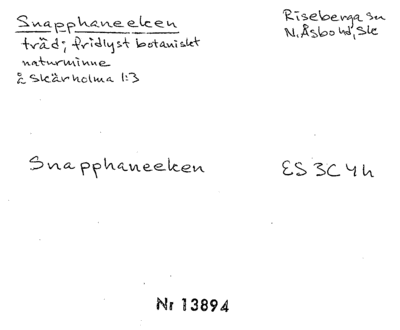 Snapphaneeken
träd; fridlyst botaniskt
naturminne
å Skärholma 1:3
Riseberga sn
N. Åsbo hd, Sk
Snapphaneeken
ES 3C4h
Nr 13894